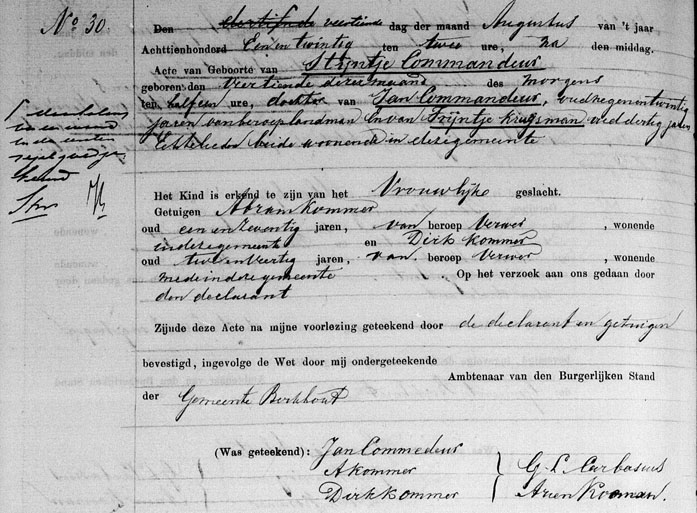 No. 30.
Den dertiende veertiende dag der maand Augustus van 't jaar
Achttienhonderd Een en twintig ten twee ure, na den middag.
Acte van Geboorte van Stijntje Commandeur
geboren den Veertiende dezer maand des morgens
ten half een ure, dochter van Jan Commandeur, oud negen en twintig
jaren van beroep landman En van Trijntje Kruijsman oud dertig jaren
Echtelieden beide woonende in deze gemeente
Het Kind is erkend te zijn van het Vrouwlijke geslacht.
Getuigen Abram Kommer
oud een en zeventig jaren, van beroep Verwer, wonende
in deze gemeente en Dirk Kommer
oud twee en veertig jaren, van beroep Verwer, wonende
mede in deze gemeente. Op het verzoek aan ons gedaan door
den declarant
Zijnde deze Acte na mijne voorlezing geteekend door de declarant en getuigen
bevestigd, ingevolge de Wet door mij ondergeteekende
Ambtenaar van den Burgerlijken Stand
der Gemeente Berkhout
(Was geteekend): Jan Commedeur
A Kommer
Dirk Kommer
G. L. Carbasius
Arien Kooman.